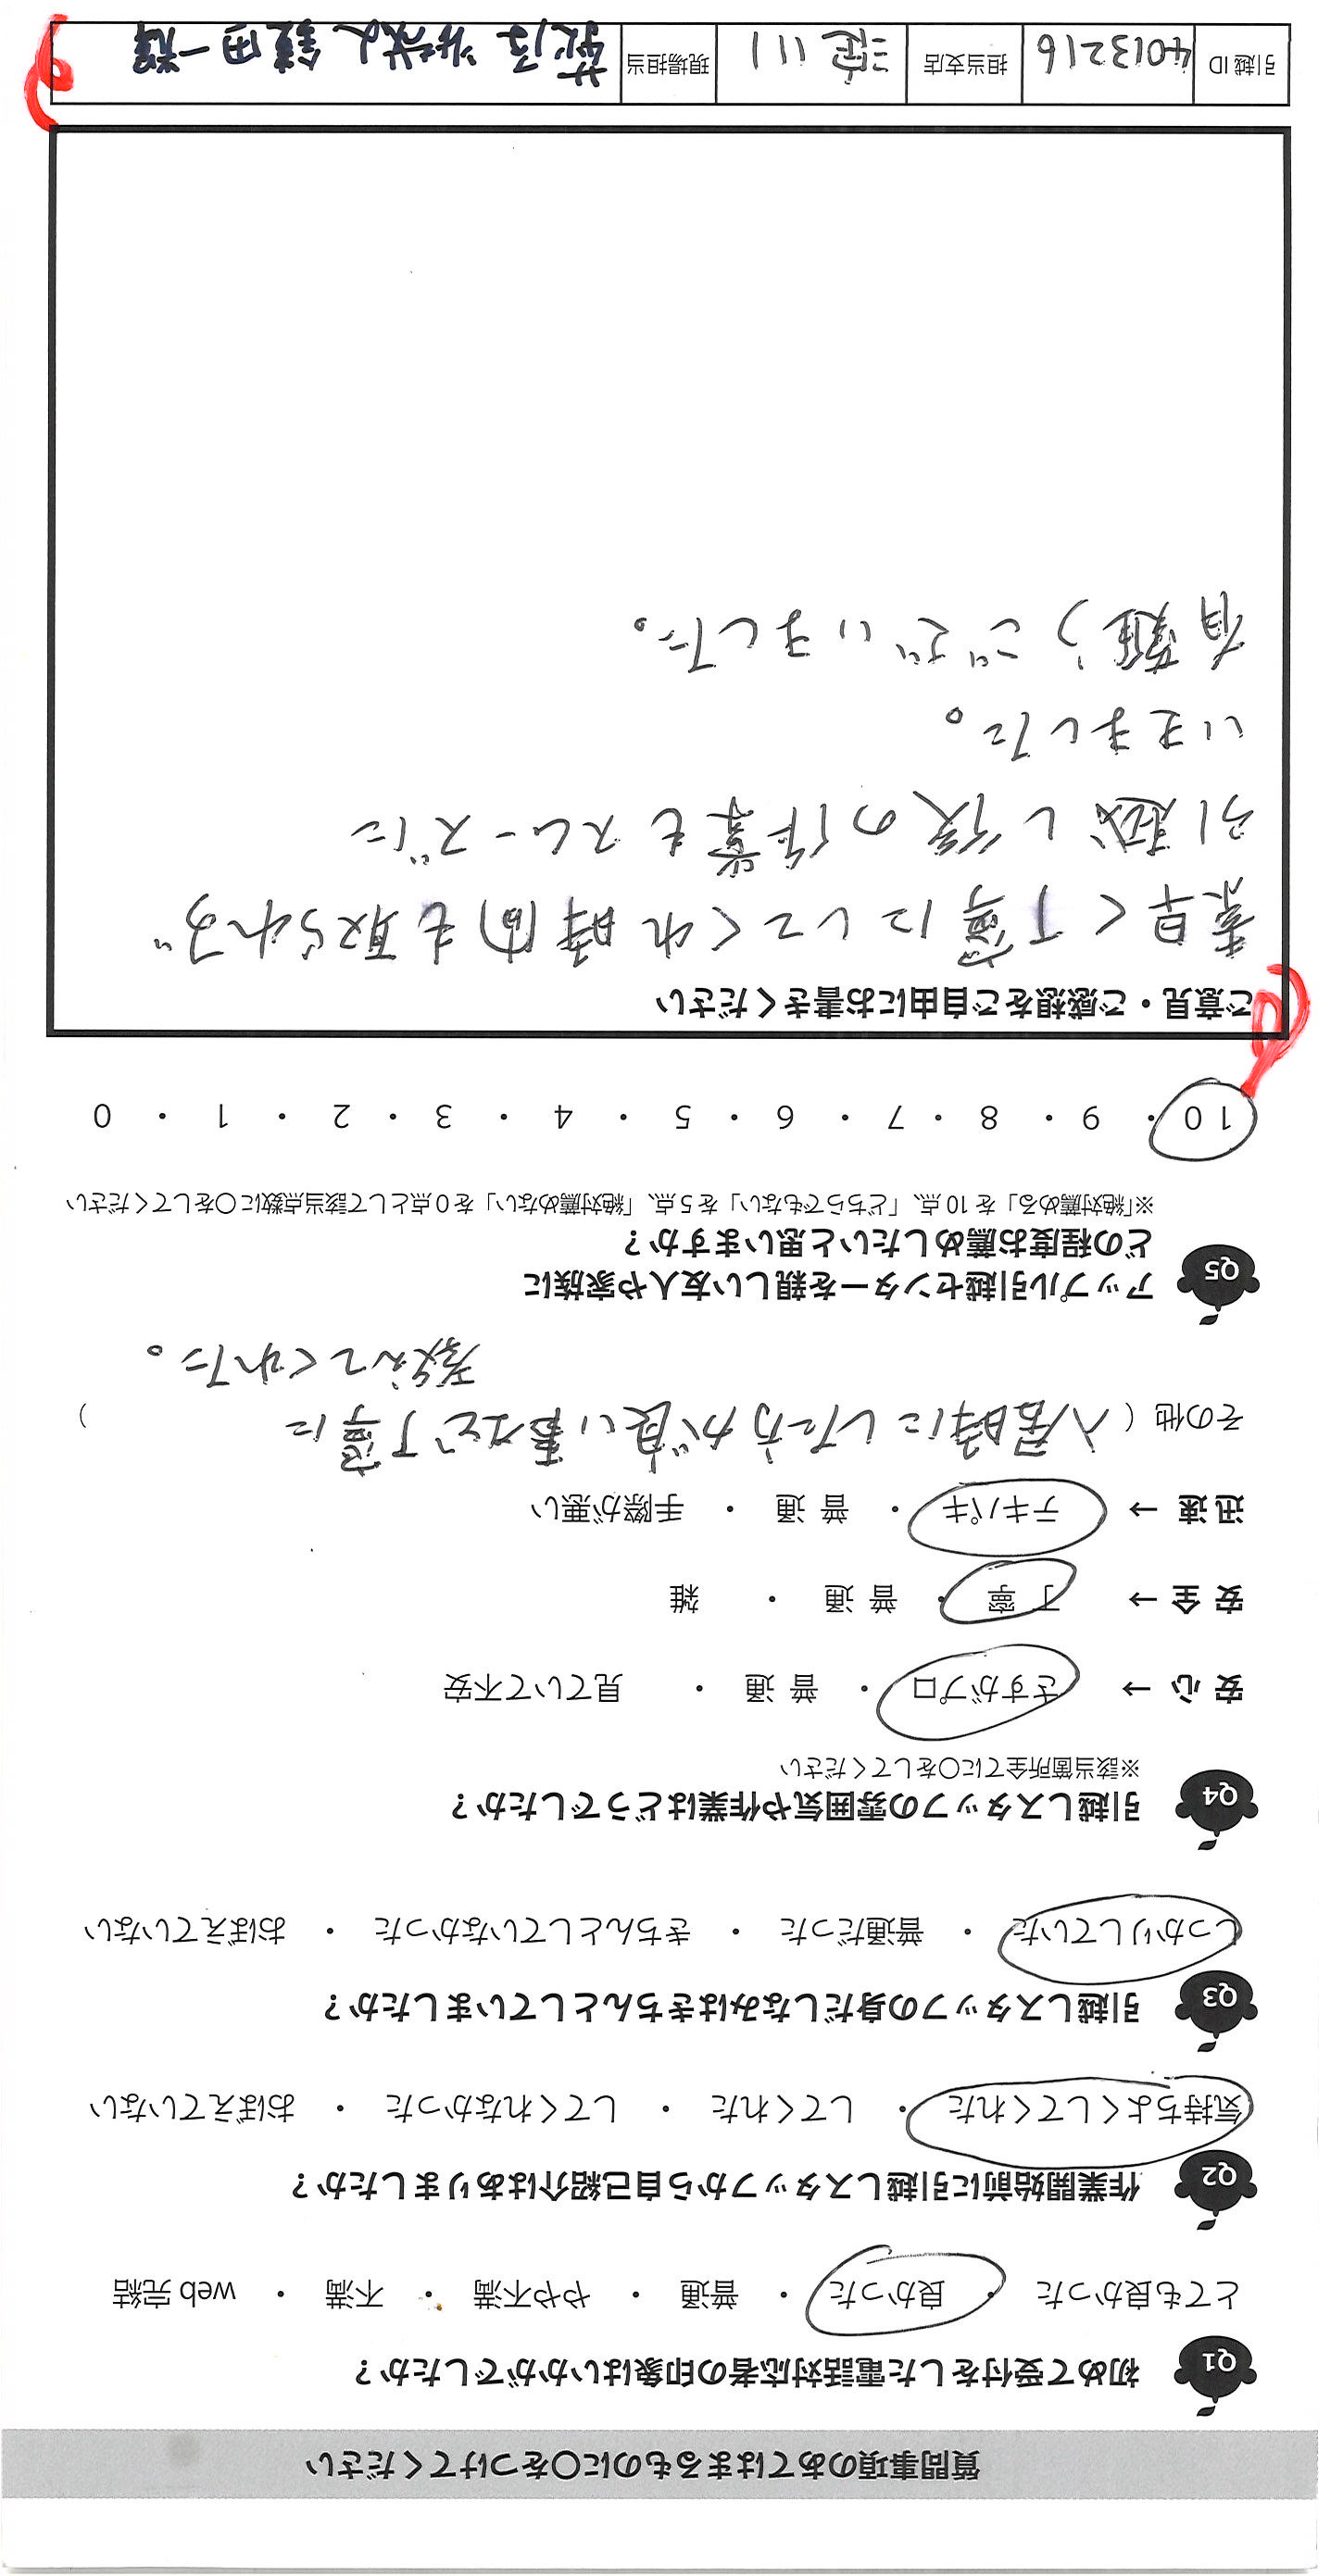 質問事項のあてはまるものに〇をつけてください
Q1 初めて受付をした電話対応者の印象はいかがでしたか?
とても良かった ・ 良かった ・ 普通 ・ やや不満 ・ 不満 ・ web 完結
Q2 作業開始前に引越しスタッフから自己紹介はありましたか?
気持ちよくしてくれた ・ してくれた ・ してくれなかった ・ おぼえていない
Q3 引越しスタッフの身だしなみはきちんとしていましたか?
しっかりしていた ・ 普通だった ・ きちんとしていなかった ・ おぼえていない
Q4 引越しスタッフの雰囲気や作業はどうでしたか?
※該当箇所全てに〇をしてください
安心 → さすがプロ ・ 普通 ・ 見ていて不安
安全 → 丁寧 ・ 普通 ・ 雑
迅速 → テキパキ ・ 普通 ・ 手際が悪い
その他 ( 入居時にした方が良い事など丁寧に )
教えてくれた。
Q5 アップル引越センターを親しい友人や家族に
どの程度お薦めしたいと思いますか?
※「絶対薦める」を 10 点、「どちらでもない」を 5 点、「絶対薦めない」を 0 点として該当点数に〇をしてください
10 ・ 9 ・ 8 ・ 7 ・ 6 ・ 5 ・ 4 ・ 3 ・ 2 ・ 1 ・ 0
ご意見・ご感想をご自由にお書きください
素早く丁寧にしてくれ時間も取られず
引越し後の作業もスムーズに
いました。
有難うございました。
引越ID 4013216 担当支店 淀川 現場担当 鎌田一輝